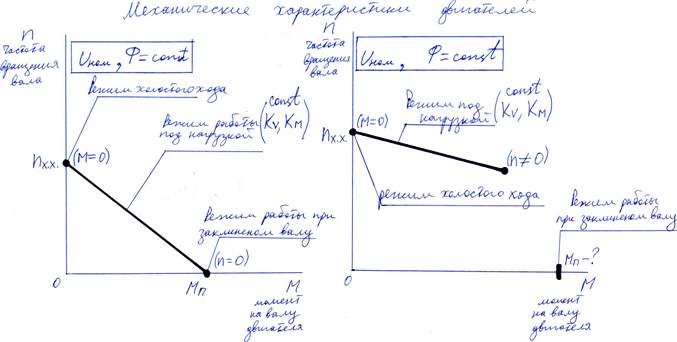 Механические характеристики двигателей
n
частота
вращения
вала
Uном, Ф=const
Режим холостого хода
Режим работы
под нагрузкой
const
(Kv, Kм)
nх.х.
(M=0)
Режим работы при
заклиненом валу
(n=0)
0
Mп
M
момент
на валу
двигателя
n
частота
вращения
вала
Uном, Ф=const
(M=0)
Режим под
нагрузкой
const
(Kv, Kм)
nх.х.
(n≠0)
режим холостого хода
Режим работы
при заклиненом валу
Mп-?
0
M
момент
на валу
двигателя